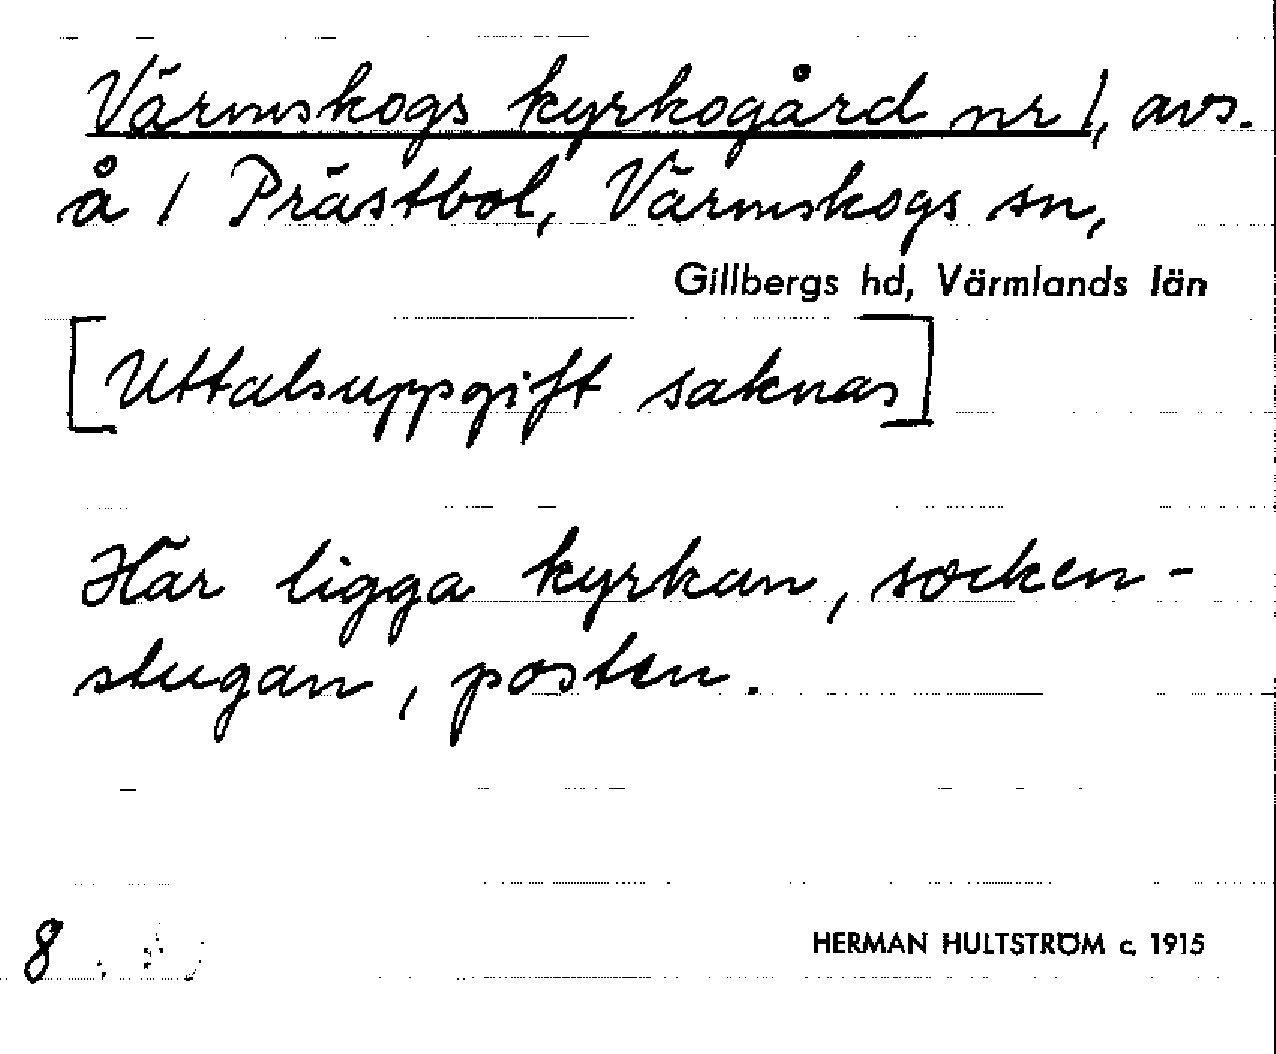 Värmskogs kyrkogård nr 1, avs.
å 1 Prästbol, Värmskogs sn,
Gillbergs hd, Värmlands län
[Uttalsuppgift saknas]
Här ligga kyrkan, socken-
stugan, posten.
8
HERMAN HULTSTRÖM c. 1915